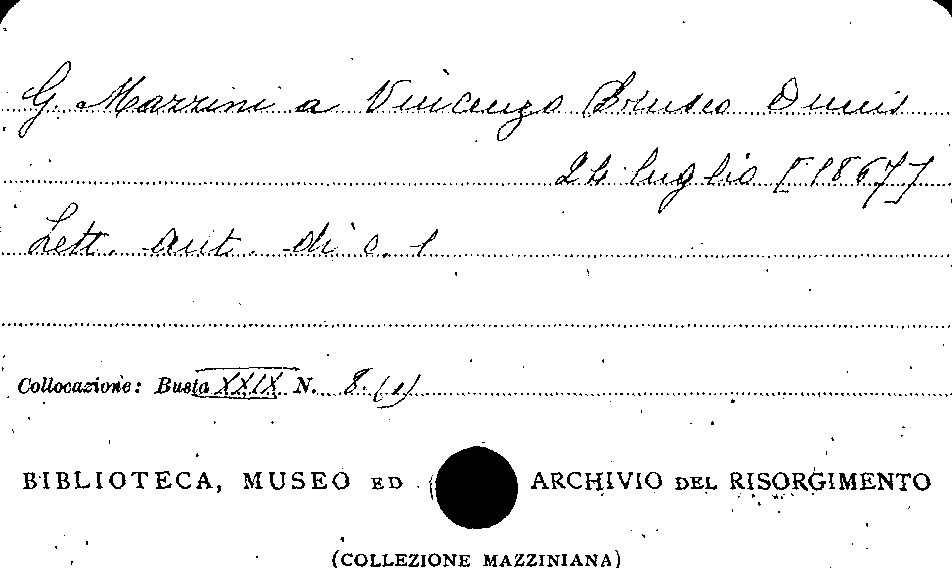 G. Mazzini a Vincenzo Brusco Onnis
24 luglio [1867]
Lett. aut. di c. 1
Collocazione: Busta XXIX N. 8. (1)
BIBLIOTECA, MUSEO ED ARCHIVIO DEL RISORGIMENTO
(COLLEZIONE MAZZINIANA)